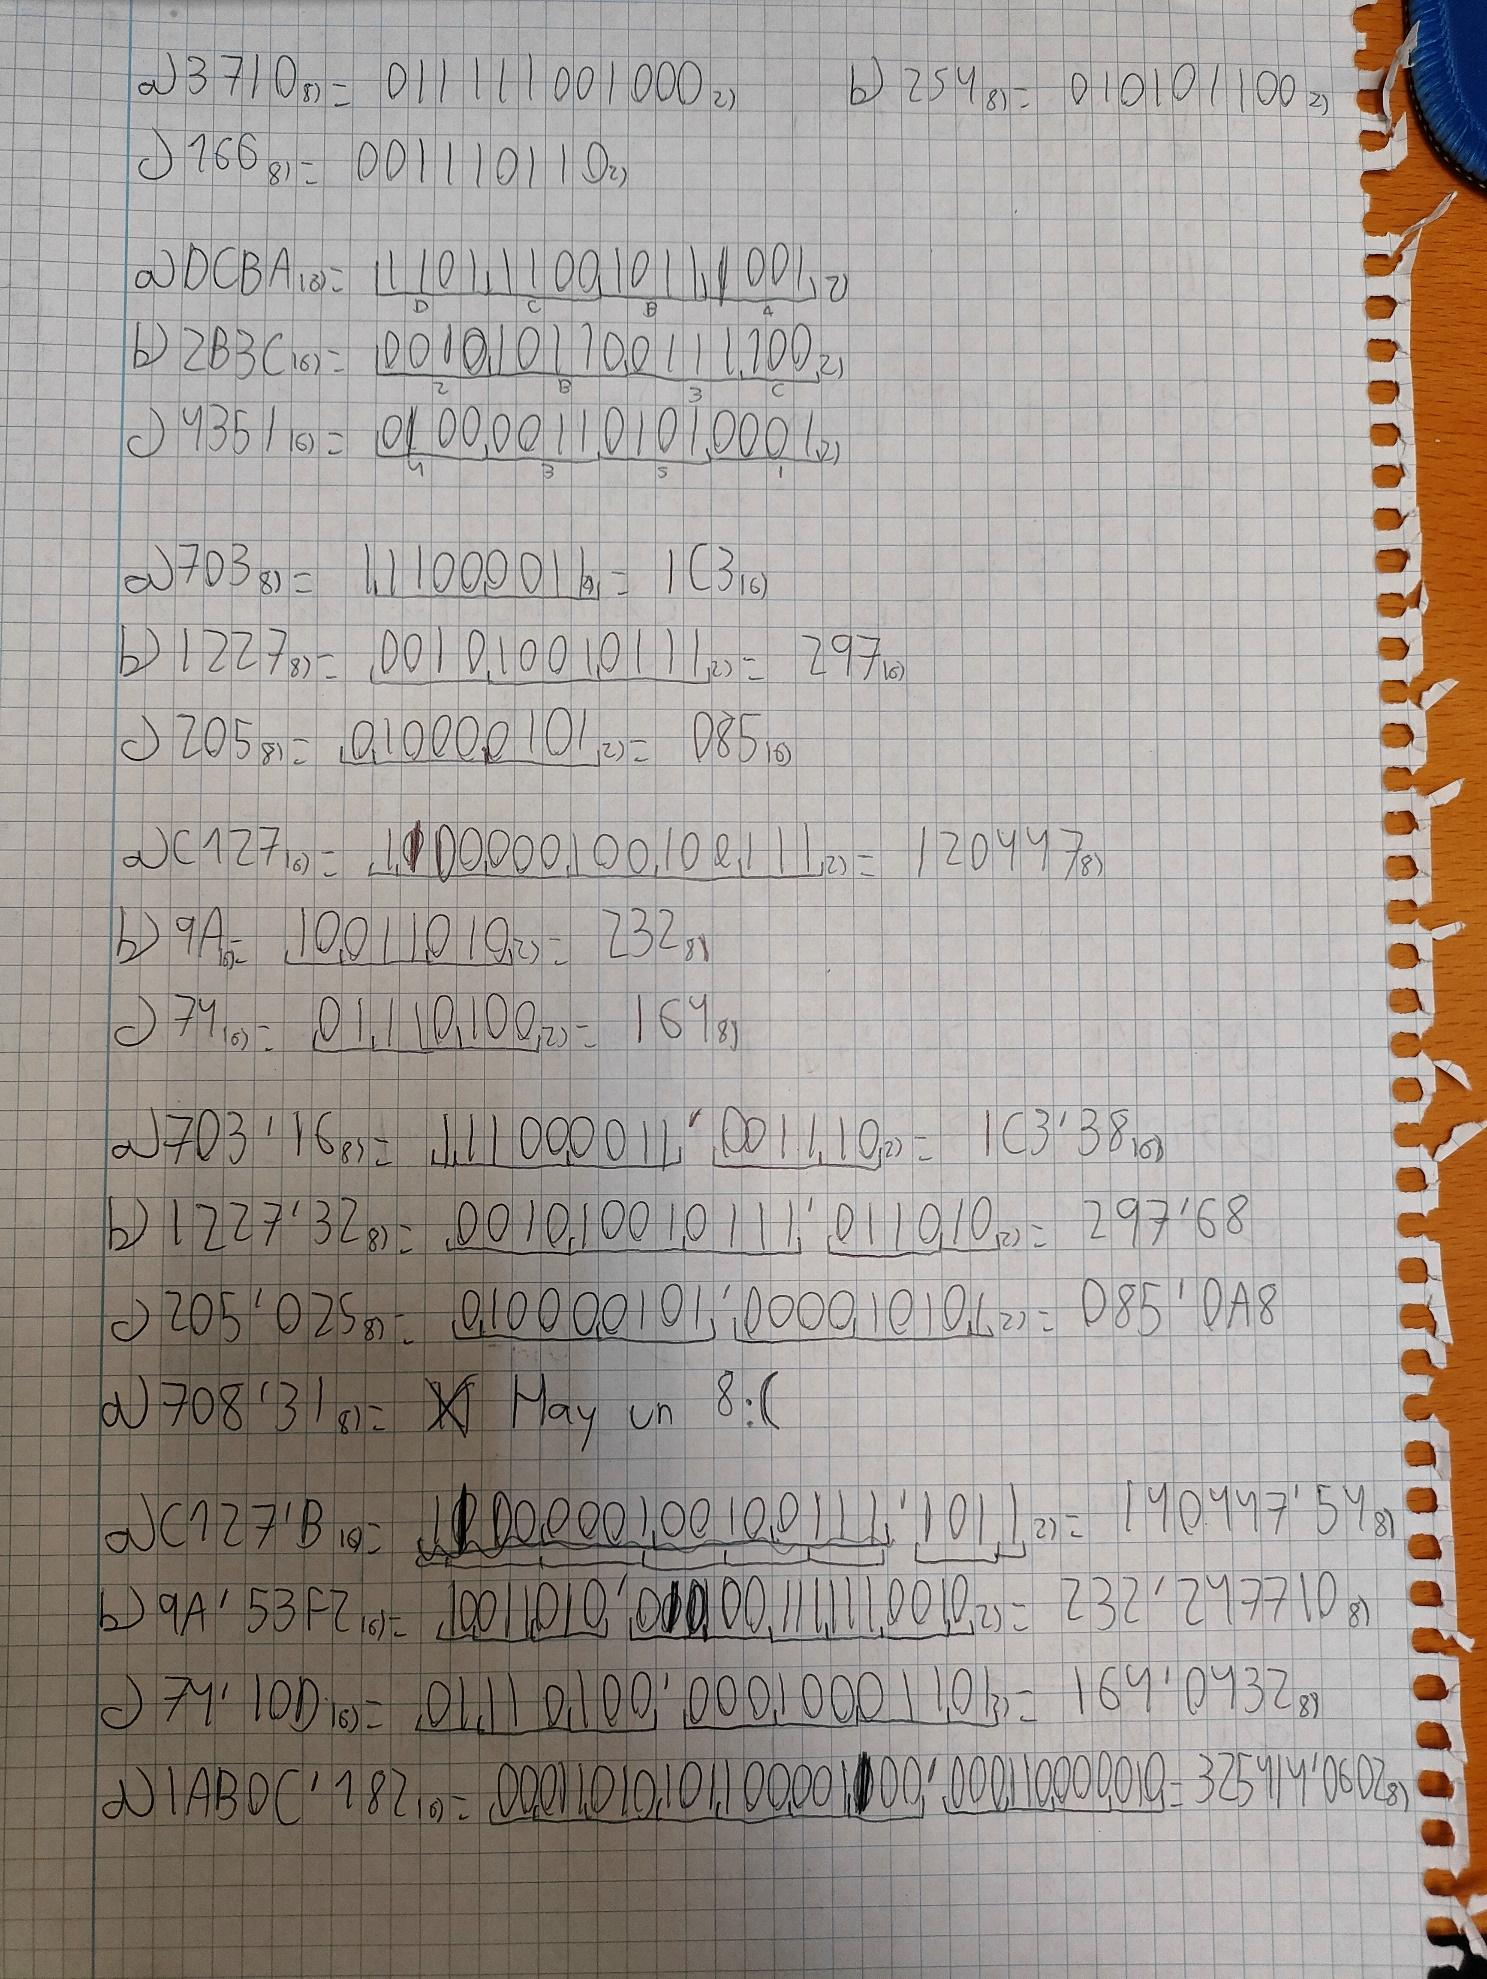 a) 3710 8) = 011111001000 2) b) 254 8) = 010101100 2)
c) 166 8) = 001110110 2)
a) DCBA 16) = 1101110010111001 2)
D C B A
b) 2B3C 16) = 0010101100111100 2)
2 B 3 C
c) 4351 16) = 0100001101010001 2)
4 3 5 1
a) 703 8) = 111000011 2) = 1C3 16)
b) 1227 8) = 001010010111 2) = 297 16)
c) 205 8) = 010000101 2) = 085 16)
a) C127 16) = 1100000100100111 2) = 120447 8)
b) 9A 16) = 10011010 2) = 232 8)
c) 74 16) = 01110100 2) = 164 8)
a) 703'16 8) = 111000011'001110 2) = 1C3'38 16)
b) 1227'32 8) = 001010010111'011010 2) = 297'68
c) 205'025 8) = 010000101'000010101 2) = 085'0A8
d) 708'31 8) = X Hay un 8:(
a) C127'B 16) = 1100000100100111'1011 2) = 140447'54 8)
b) 9A'53F2 16) = 10011010' 2) = 232'247710 8)
c) 74'10D 16) = 01110100'000100001101 2) = 164'0432 8)
d) 1AB0C'182 16) = '000110000010 = 325414'0602 8)